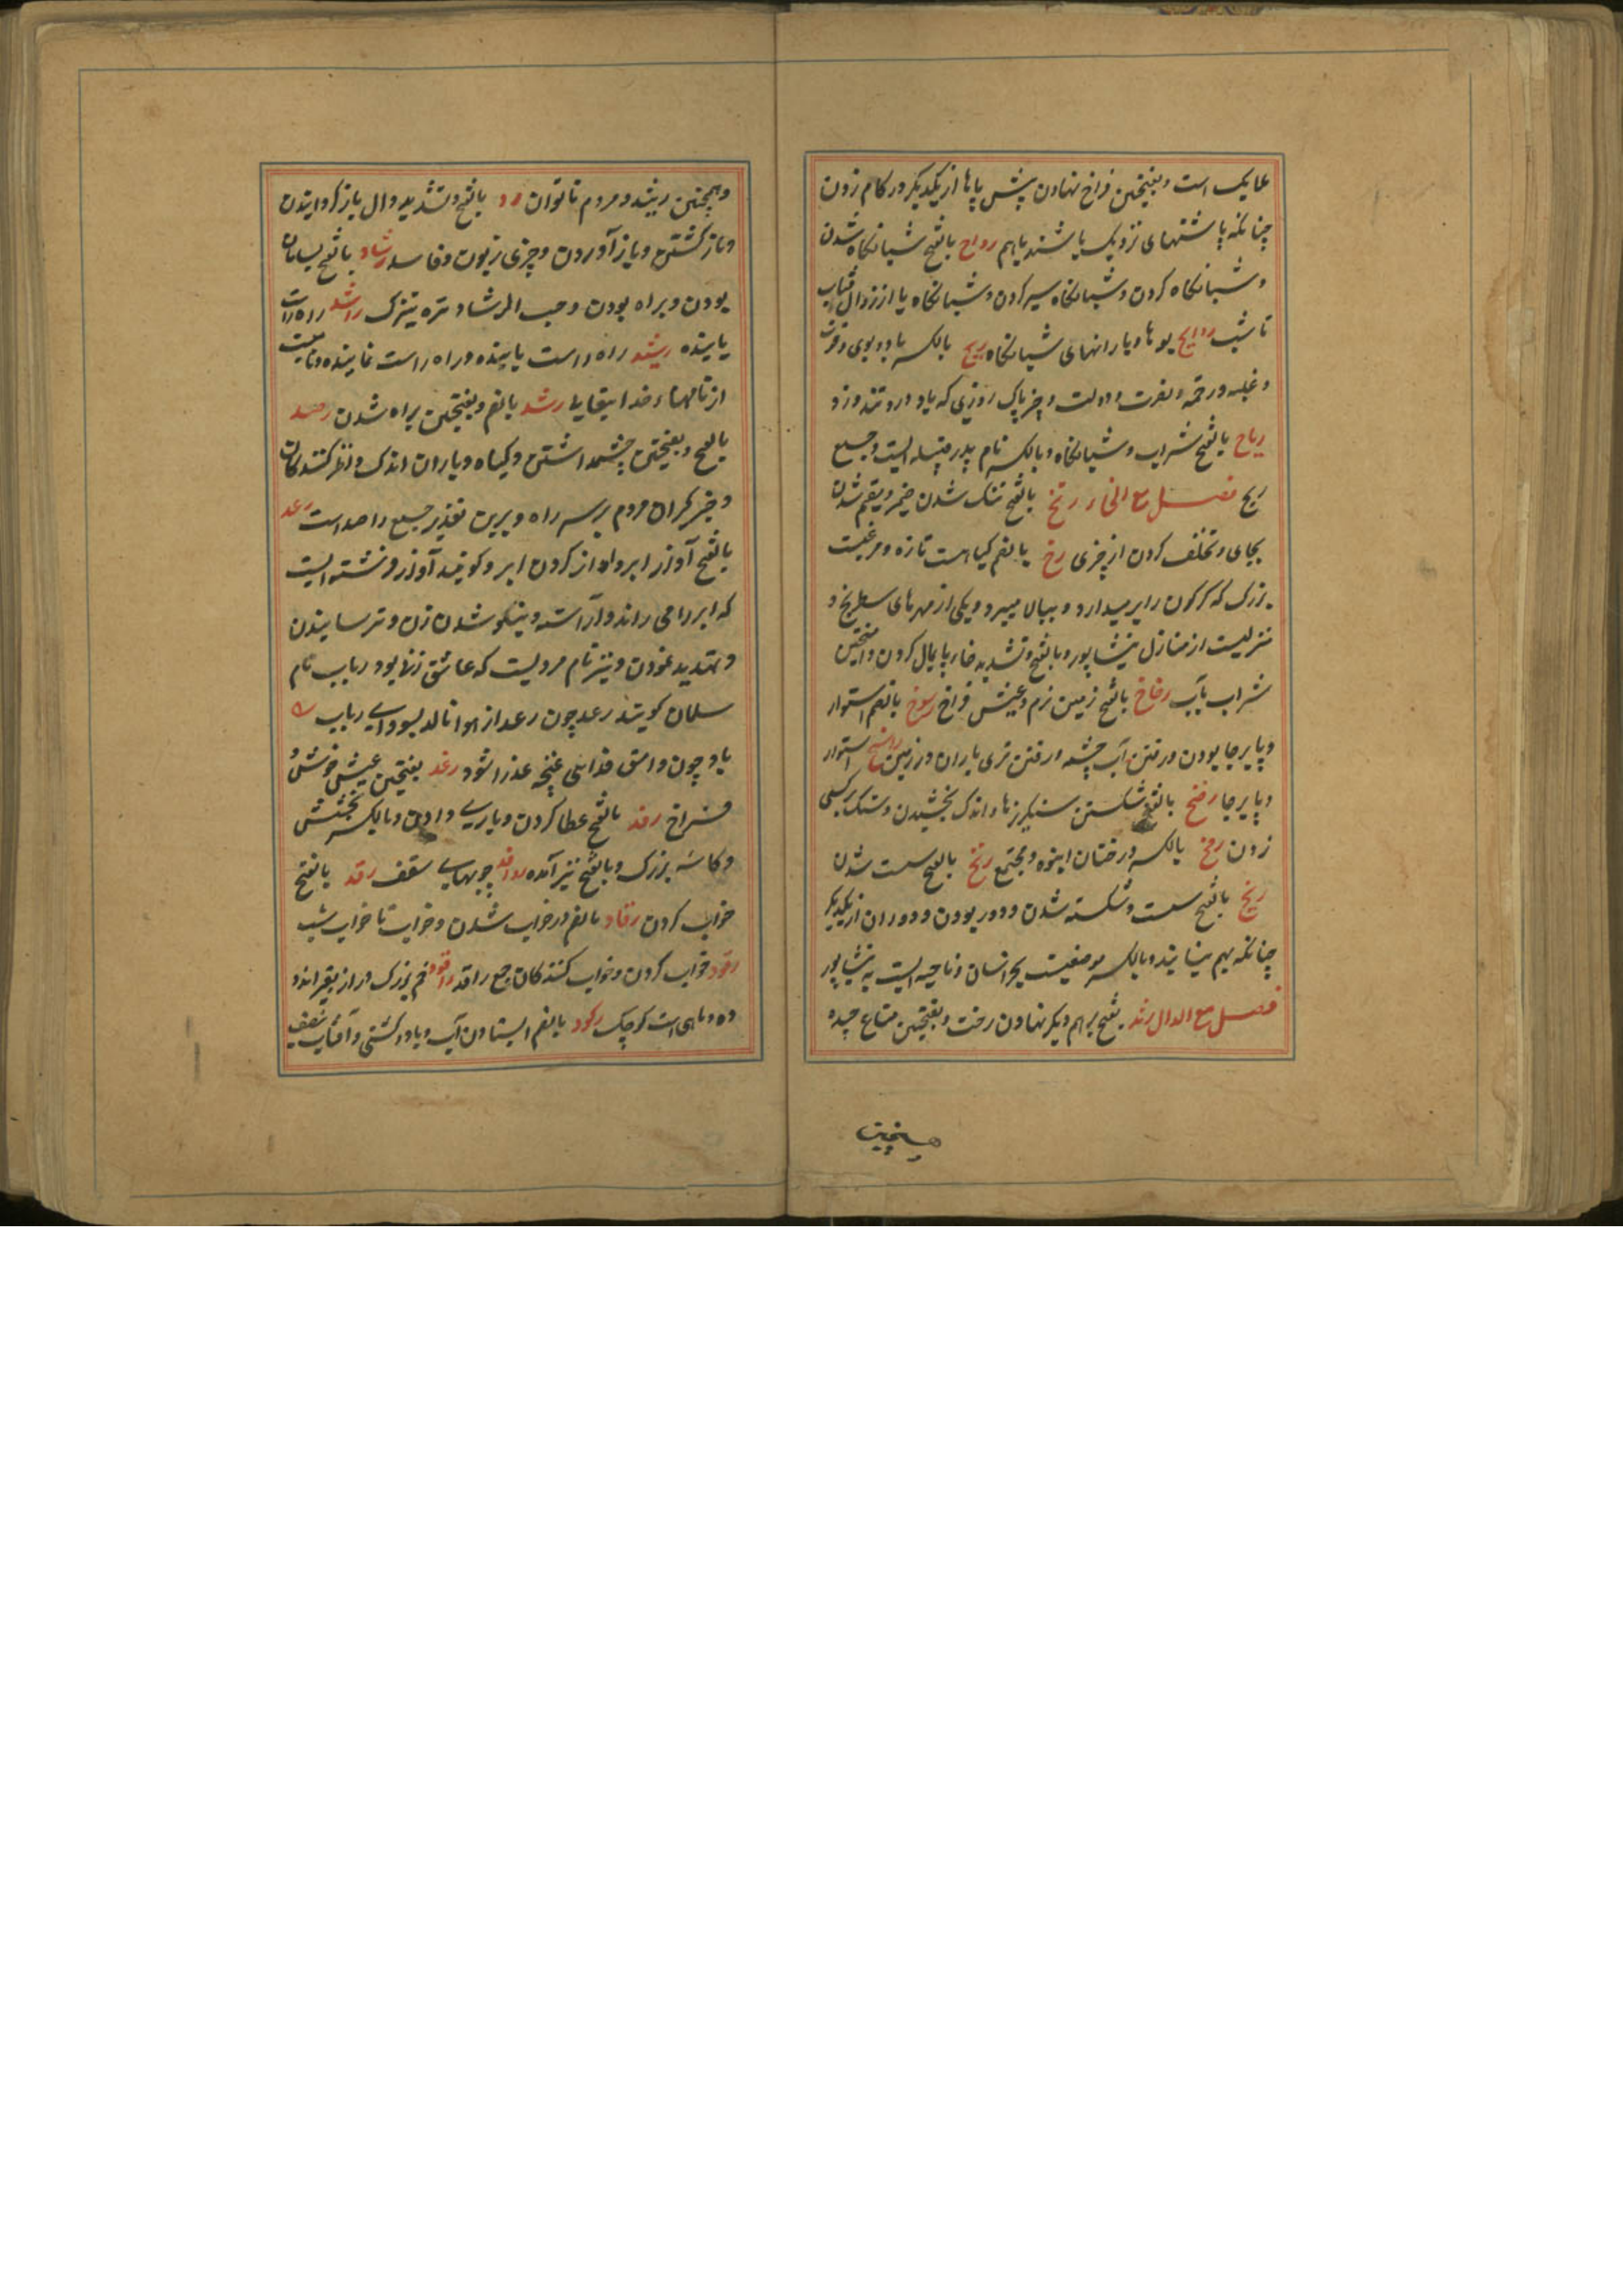 علایک است و بفتحتین فراخ نهادن پیش پاها از یکدیکر در کام زدن
چنانکه پاشنهای نزدیک باشند باهم رواح بالفتح شبانکاه شدن
و شبانکاه کردن و شبانکاه سیر کردن و شبانکاه یا از زوال آفتاب
تا شب روایح بوها و بارانهای شبانکاه ریح بالکسر باد و بوی و قوت
و غلبه و رحمة و نصرت و دولت و چیز پاک روزی که باد درو تند وزد
ریاح بالفتح شراب و شبانکاه و بالکسر نام پدر قبیله ایست و جمع
ریح فصل مع الخاء رتخ بالفتح تنک شدن خمیر و مقیم شدن
بجای و تخلف کردن از چیزی رخ بالضم کیاهست تازه و مرغیست
بزرک که کرکدن را بر میدارد و ببالا میبرد و یکی از مهرهای سطرنج و
منزلیست از منازل نیشاپور و بالفتح و تشدید خاء پایمال کردن و آمیختن
شراب بآب رخاخ بالفتح زمین نرم و عیش فراخ رسوخ بالضم استوار
و پابرجا بودن و رفتن آب چشمه و رفتن تری باران در زمین راسخ استوار
و پابرجا رضخ بالفتح شکستن سنکریزها و اندک بخشیدن و سنک بر کسی
زدن رمخ بالکسر درختان انبوه و مجتمع رنخ بالفتح سست شدن
ریخ بالفتح سست و شکسته شدن و دور بودن و دو ران از یکدیکر
چنانکه بهم نیایند و بالکسر موضعیست بخراسان و ناحیه ایست به نیشاپور
فصل مع الدال رثد بفتح بر هم دیکر نهادن رخت و بفتحتین متاع چیده
همچنین
و همچنین رثید و مردم ناتوان رد بالفتح و تشدید دال باز کردانیدن
و باز کشتن و باز آوردن و چیزی زبون و فاسد رشاد بالفتح بسامان
بودن و براه بودن و حب الرشاد تره تیزک راشد راه راست
یابنده رشید راه راست یابنده و راه راست نماینده و نامیست
از نامهاء خدایتعالی رشد بالضم و بفتحتین براه شدن رصد
بالفتح و بفتحتین چشمداشتن و کیاه و باران اندک و نظر کنندکان
و خبرکیران مردم بر سر راه و برین تقدیر جمع راصد است رعد
بالفتح آواز ابر و آواز کردن ابر و کویند آواز فرشته ایست
که ابر را می راند و آراسته و نیکو شدن زن و ترسانیدن
و تهدید نمودن و نیز نام مردیست که عاشق زنها بود رباب نام
سلمان کویند رعد چون رعد از هوا نالد بسودای رباب
باد چون وامق فدائی غنچه عذرا شود رغد بفتحتین عیش خوش و
فراخ رفد بالفتح عطا کردن و یاری دادن و بالکسر بخشش
و کاسه بزرک و بالفتح نیز آمده روافد چوبهای سقف رقد بالفتح
خواب کردن رقاد بالضم در خواب شدن و خواب تا خواب شب
رقود خواب کردن و خواب کنندکان جمع راقد راقود خم بزرک دراز بقیر اندو
ده و ماهی است کوچک رکود بالضم ایستادن آب و باد و کشتی و آفتاب نصف